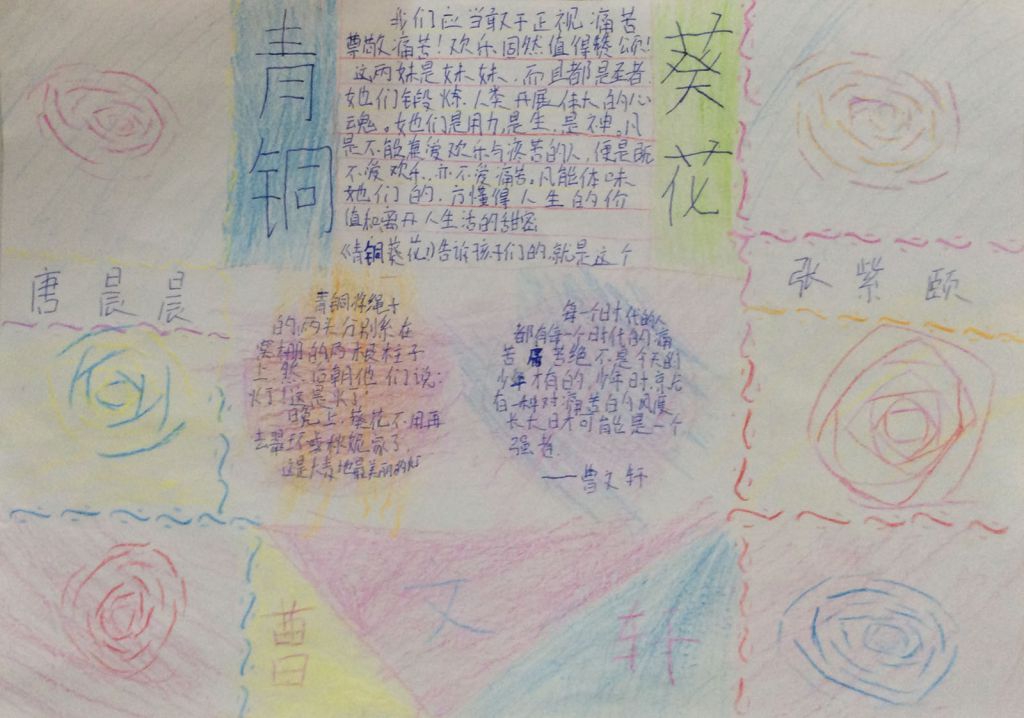 青铜
我们应当敢于正视痛苦
尊敬痛苦！欢乐固然值得赞颂！
这两妹是妹妹，而且都是圣者，
她们锻炼人类开展伟大的心
魂。她们是用力，是生，是神。凡
是不能兼爱欢乐与疼苦的人，便是既
不爱欢乐，亦不爱痛苦。凡能体味
她们的，方懂得人生的价
值和离开人生活的甜密
《青铜葵花》告诉孩子们的，就是这个
葵花
唐晨晨
张紫颐
青铜将绳子
的两头分别系在
的两根柱子
上然后朝他们说：
灯！这是灯！
晚上，葵花不用再
去翠环 秋妮家了
这是大麦地最美丽的灯
每一个时代的人
都有每一个时代的痛
苦 苦绝不是今天的
少年才有的，少年时
有一种对痛苦的风度
长大日才可能是一个
强者。
——曹文轩
曹文轩